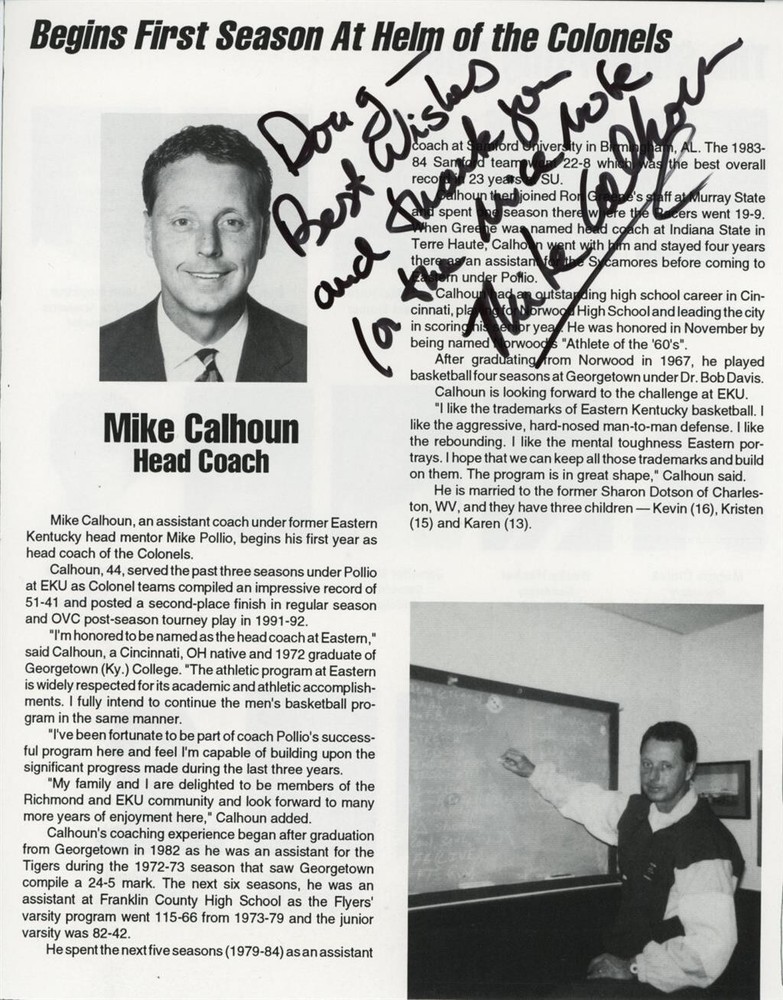 Begins First Season At Helm of the Colonels
Doug —
Best Wishes
and thank you
for the nice note
Mike Calhoun
Mike Calhoun
Head Coach
Mike Calhoun, an assistant coach under former Eastern
Kentucky head mentor Mike Pollio, begins his first year as
head coach of the Colonels.
Calhoun, 44, served the past three seasons under Pollio
at EKU as Colonel teams compiled an impressive record of
51-41 and posted a second-place finish in regular season
and OVC post-season tourney play in 1991-92.
"I'm honored to be named as the head coach at Eastern,"
said Calhoun, a Cincinnati, OH native and 1972 graduate of
Georgetown (Ky.) College. "The athletic program at Eastern
is widely respected for its academic and athletic accomplish-
ments. I fully intend to continue the men's basketball pro-
gram in the same manner.
"I've been fortunate to be part of coach Pollio's success-
ful program here and feel I'm capable of building upon the
significant progress made during the last three years.
"My family and I are delighted to be members of the
Richmond and EKU community and look forward to many
more years of enjoyment here," Calhoun added.
Calhoun's coaching experience began after graduation
from Georgetown in 1982 as he was an assistant for the
Tigers during the 1972-73 season that saw Georgetown
compile a 24-5 mark. The next six seasons, he was an
assistant at Franklin County High School as the Flyers'
varsity program went 115-66 from 1973-79 and the junior
varsity was 82-42.
He spent the next five seasons (1979-84) as an assistant
coach at Samford University in Birmingham, AL. The 1983-
84 Samford team went 22-8 which was the best overall
record in 23 years at SU.
Calhoun then joined Ron Greene's staff at Murray State
and spent one season there where the Racers went 19-9.
When Greene was named head coach at Indiana State in
Terre Haute, Calhoun went with him and stayed four years
there as an assistant for the Sycamores before coming to
Eastern under Pollio.
Calhoun had an outstanding high school career in Cin-
cinnati, playing for Norwood High School and leading the city
in scoring his senior year. He was honored in November by
being named Norwood's "Athlete of the '60's".
After graduating from Norwood in 1967, he played
basketball four seasons at Georgetown under Dr. Bob Davis.
Calhoun is looking forward to the challenge at EKU.
"I like the trademarks of Eastern Kentucky basketball. I
like the aggressive, hard-nosed man-to-man defense. I like
the rebounding. I like the mental toughness Eastern por-
trays. I hope that we can keep all those trademarks and build
on them. The program is in great shape," Calhoun said.
He is married to the former Sharon Dotson of Charles-
ton, WV, and they have three children — Kevin (16), Kristen
(15) and Karen (13).